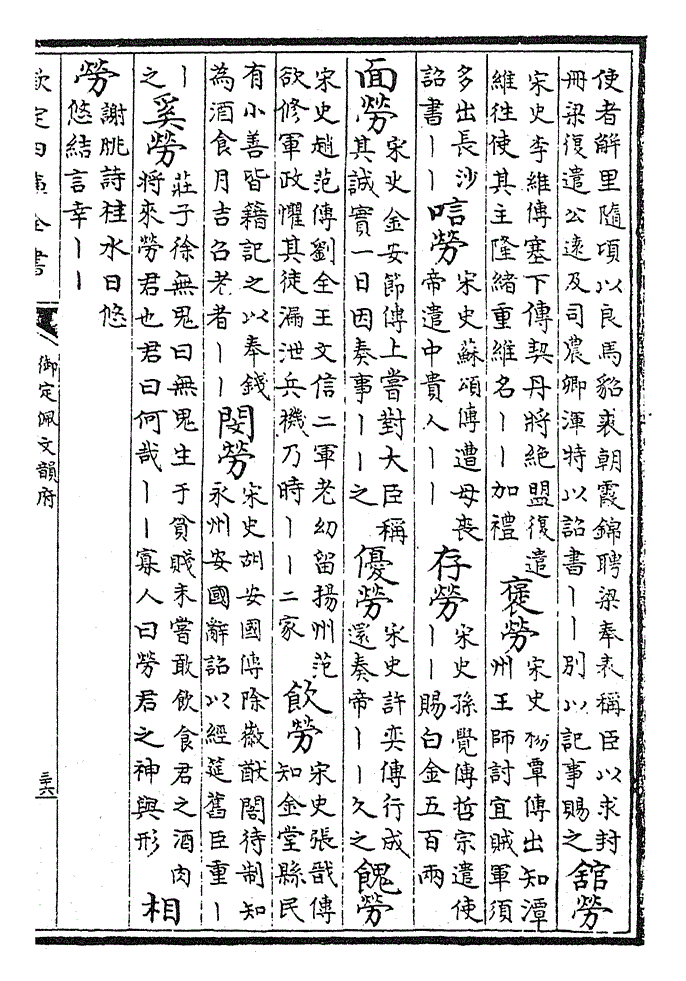 使者解里隨頃以良馬貂裘朝霞錦聘梁奉表稱臣以求封
冊梁復遣公逺及司農卿渾特以詔書丨丨别以記事賜之
舘勞
宋史李維傳塞下傳契丹將絶盟復遣
維徃使其主隆緒重維名丨丨加禮
襃勞
宋史楊覃傳出知潭
州王師討宜賊軍須
多出長沙
詔書丨丨
唁勞
宋史蘇頌傳遭母喪
帝遣中貴人丨丨
存勞
宋史孫覺傳哲宗遣使
丨丨賜白金五百兩
面勞
宋史金安節傳上嘗對大臣稱
其誠實一日因奏事丨丨之
優勞
宋史許奕傳行成
還奏帝丨丨久之
餽勞
宋史趙范傳劉全王文信二軍老幼留揚州范
欲修軍政懼其徒漏泄兵機乃時丨丨二家
飲勞
宋史張戩傳
知金堂縣民
有小善皆籍記之以奉錢
為酒食月吉召老者丨丨
閔勞
宋史胡安國傳除徽猷閣待制知
永州安國辭詔以經筵舊臣重丨
丨
之
奚勞
莊子徐無鬼曰無鬼生于貧賤未嘗敢飲食君之酒肉
將來勞君也君曰何哉丨丨寡人曰勞君之神與形
相
勞
謝朓詩桂水日悠
悠結言幸丨丨
欽定四庫全書
御定佩文韻府
三十六